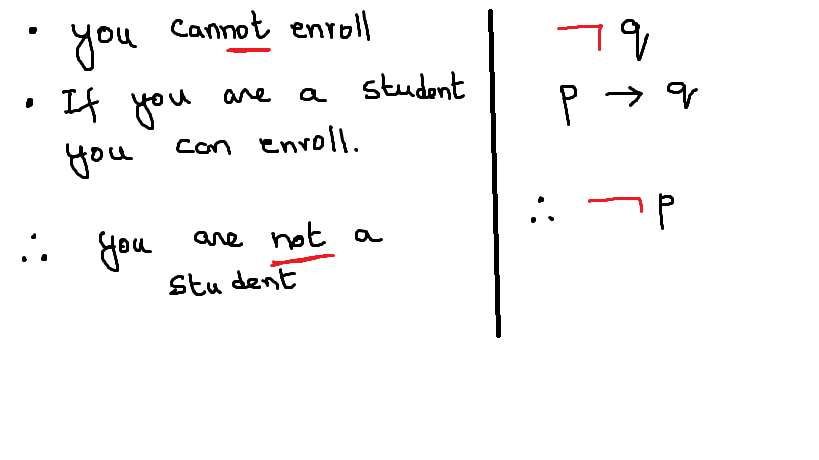 • you cannot enroll
• If you are a student
you can enroll.
∴ you are not a
student
¬ q
p → q
∴ ¬ p